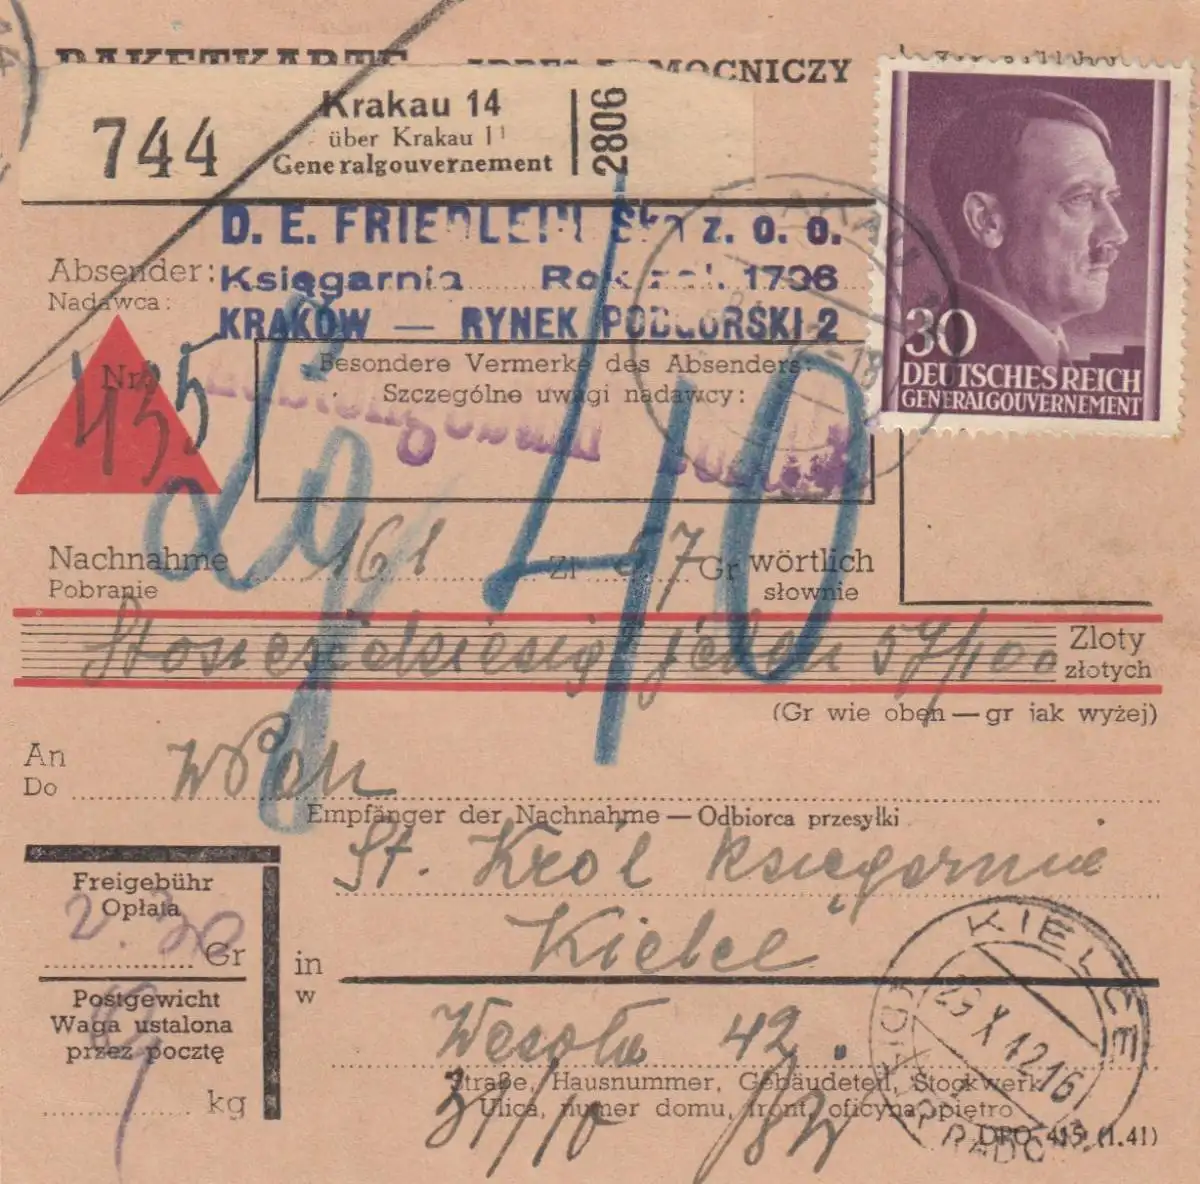 PAKETKARTE — ADRES POMOCNICZY
744
Krakau 14
über Krakau 1
Generalgouvernement
2806
D. E. FRIEDLEIN Ska z. o. o.
Absender:
Nadawca:
Księgarnia Rok zał. 1796
KRAKÓW — RYNEK PODGÓRSKI 2
30
DEUTSCHES REICH
GENERALGOUVERNEMENT
Nr.
435
Besondere Vermerke des Absenders:
Szczególne uwagi nadawcy:
40
Nachnahme 161 Zl 57 Gr wörtlich
Pobranie słownie
Stosześćdziesiąt jeden 57/100 Zloty
złotych
(Gr wie oben — gr jak wyżej)
An
Do
Empfänger der Nachnahme — Odbiorca przesyłki
St. Król księgarnia
Freigebühr
Opłata
2.30
Gr
in
w
Kielce
Postgewicht
Waga ustalona
przez pocztę
9
kg
Wesoła 42.
Straße, Hausnummer, Gebäudeteil, Stockwerk
Ulica, numer domu, front, oficyna, piętro
31/10
KIELCE
29 X 42 16
DPO 415 (1.41)